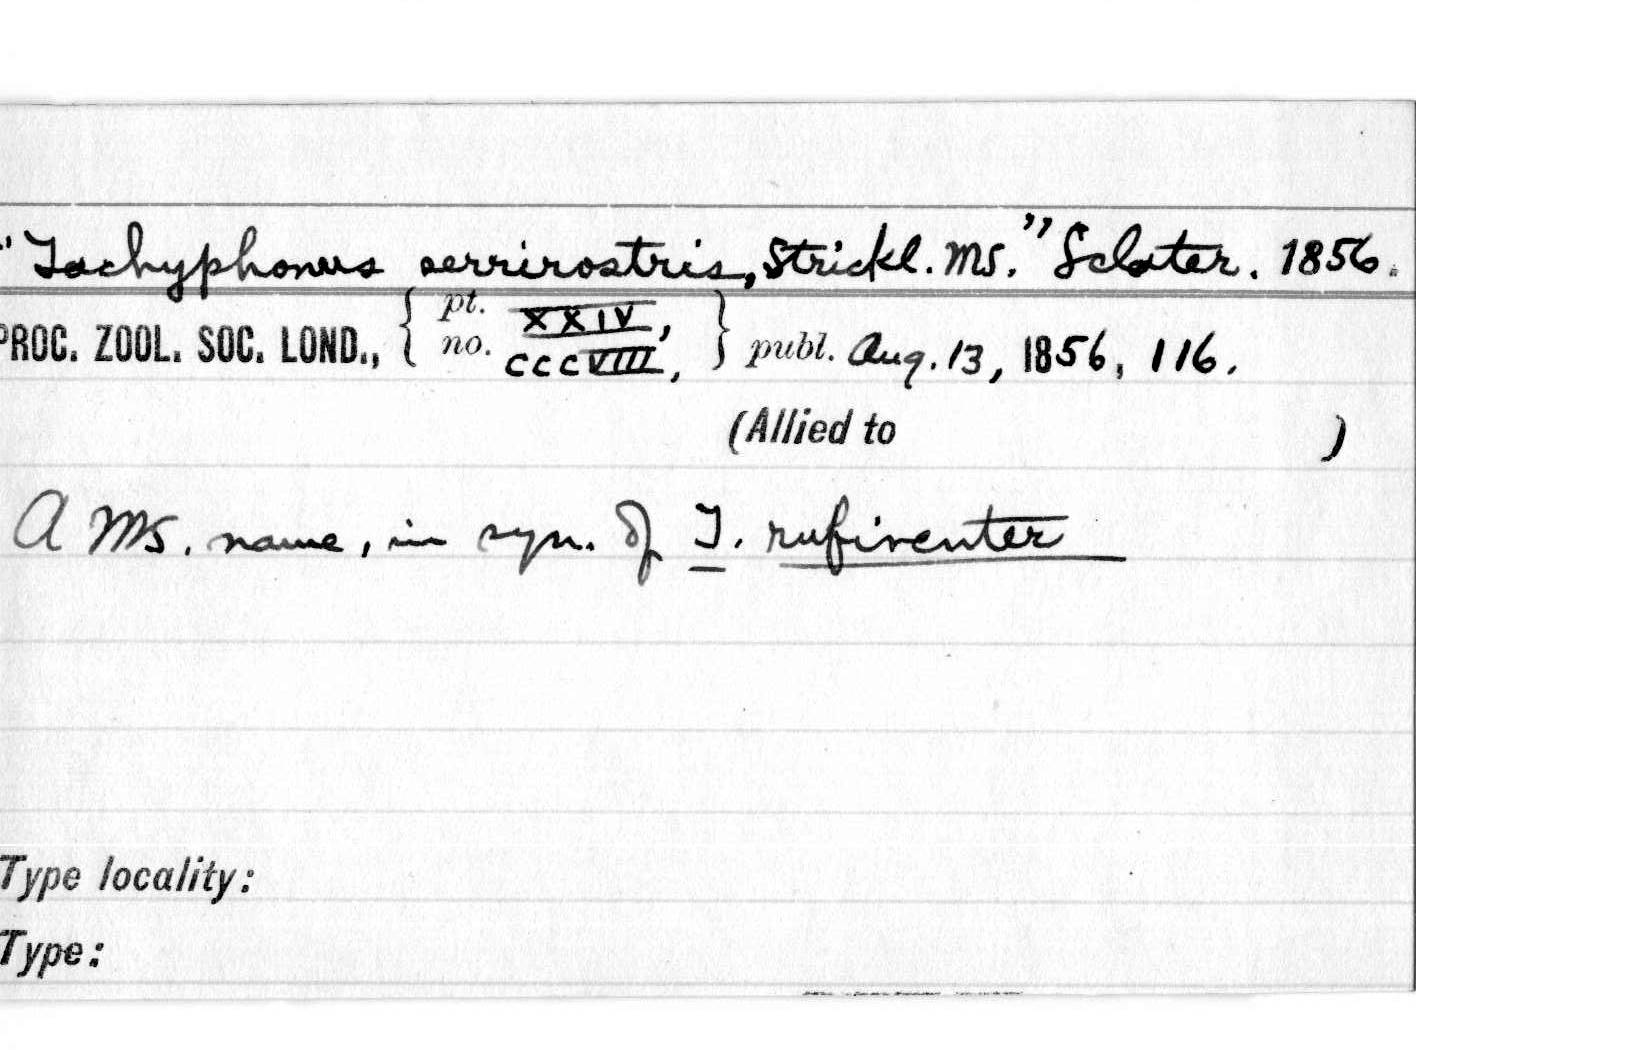 "Tachyphonus serrirostris, Strickl. MS." Sclater. 1856.
PROC. ZOOL. SOC. LOND., { pt. XXIV, no. CCCVIII, } publ. Aug. 13, 1856, 116.
(Allied to )
A MS. name, in syn. of T. rufiventer
Type locality:
Type: